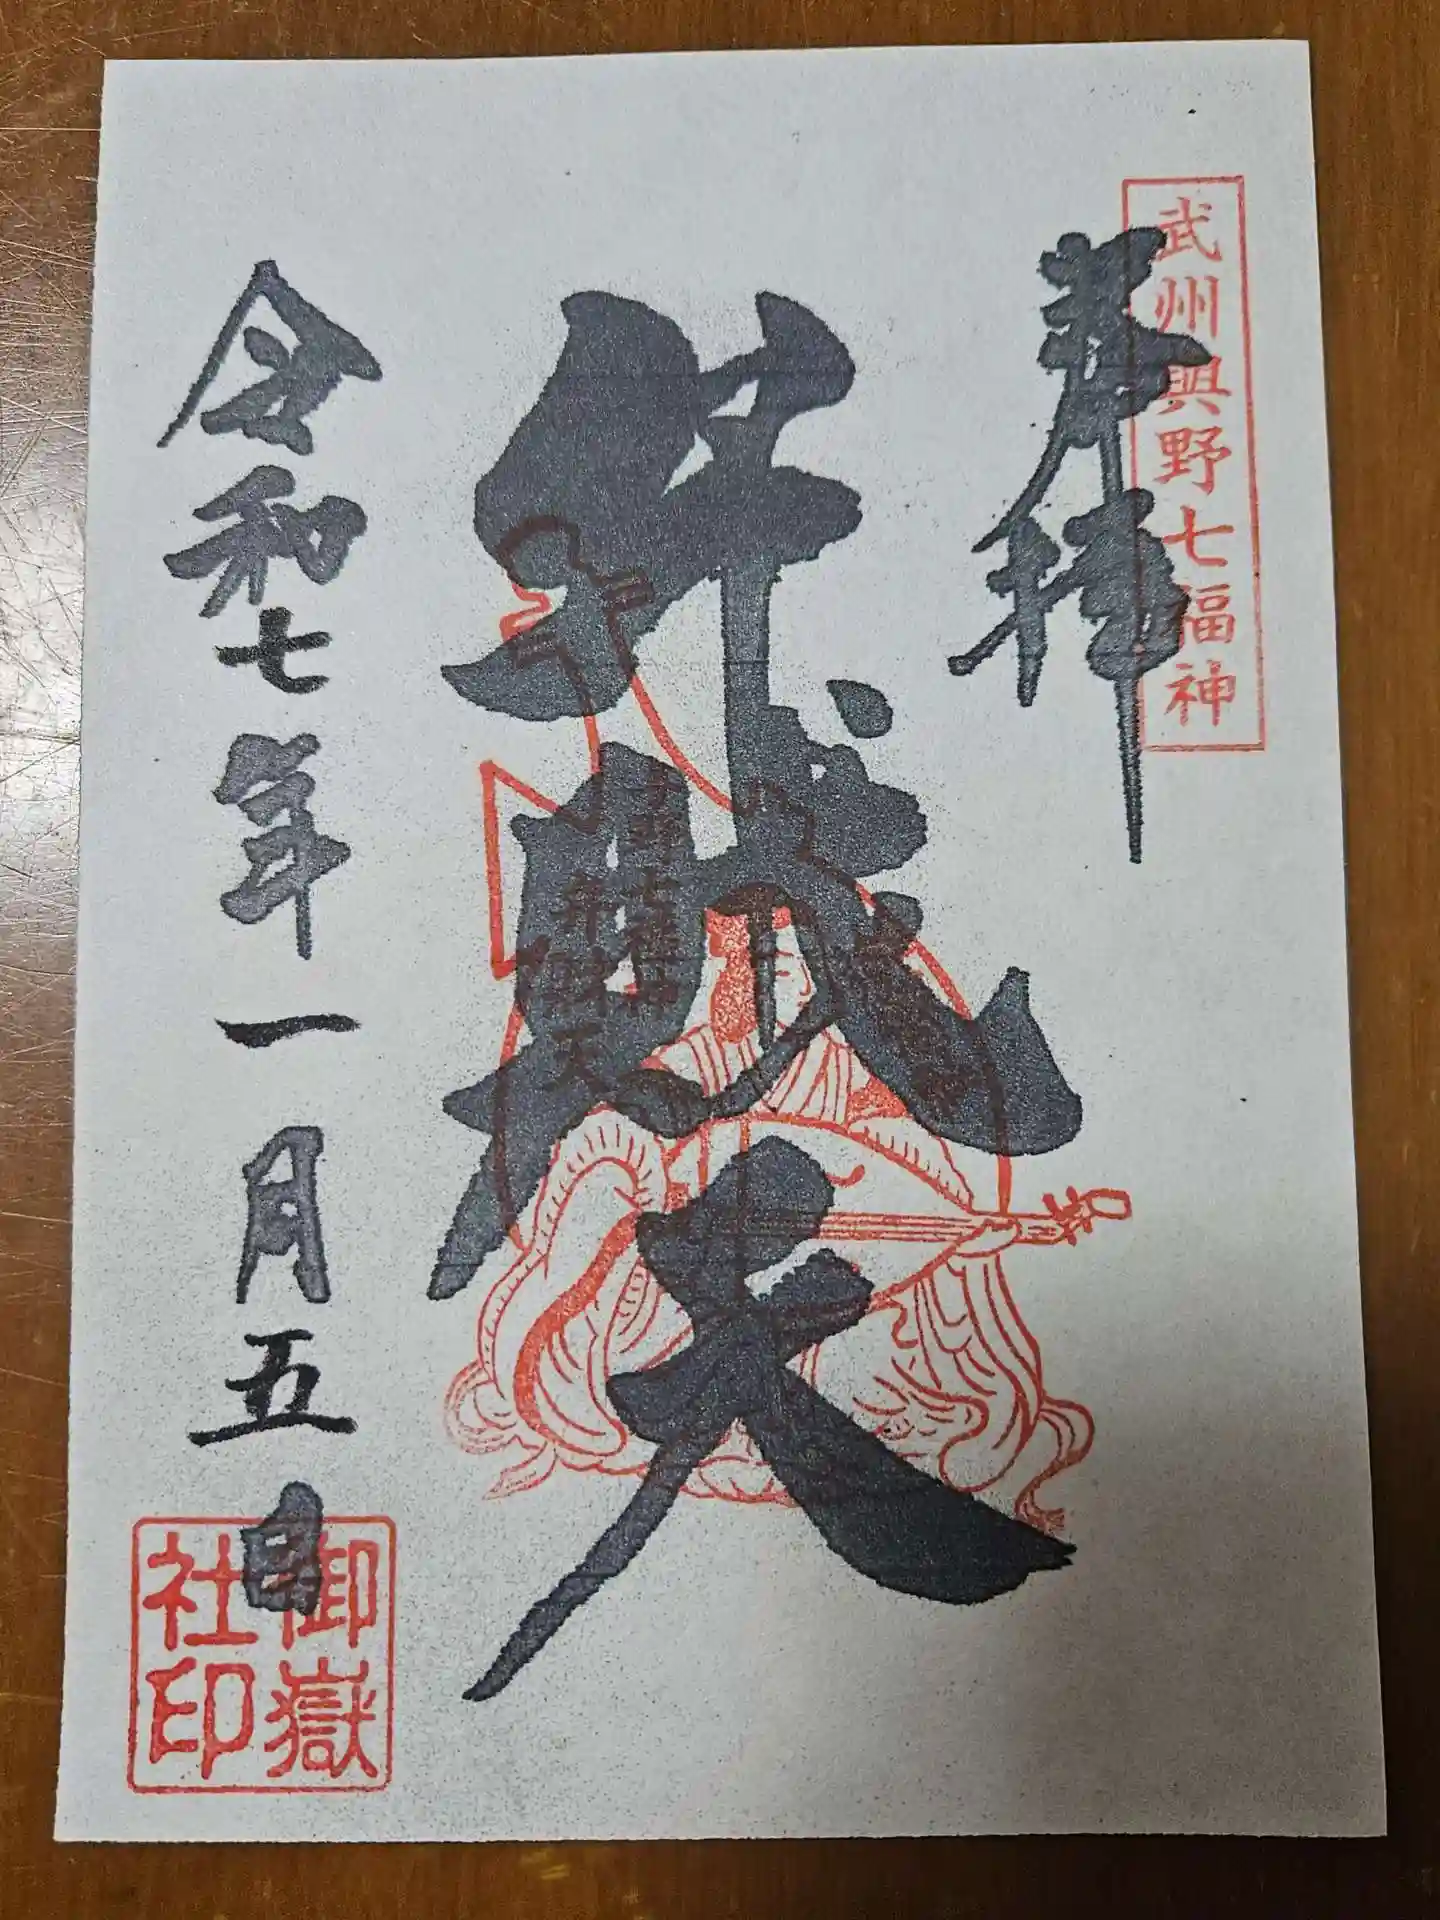 武州與野七福神
奉拝
弁財天
弁財天
令和七年一月五日
御嶽
社印